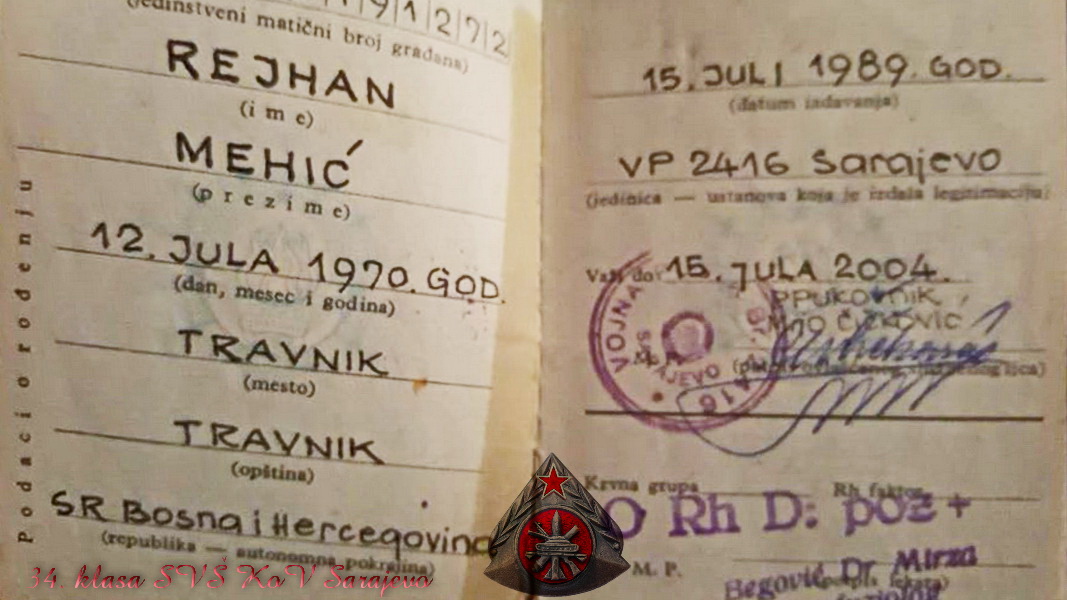 9 1 2 7 2
(jedinstveni matični broj građana)
REJHAN
(ime)
MEHIĆ
(prezime)
12. JULA 1970. GOD.
(dan, mesec i godina)
TRAVNIK
(mesto)
TRAVNIK
(opština)
SR Bosna i Hercegovina
(republika — autonomna pokrajina)
Podaci o rođenju
34. klasa SVŠ KoV Sarajevo
15. JULI 1989. GOD.
(datum izdavanja)
VP 2416 Sarajevo
(jedinica — ustanova koja je izdala legitimaciju)
Važi do 15. JULA 2004.
PPUKOVNIK
VOJNA
16
Krvna grupa Rh faktor
O Rh D: poz +
M. P.
Begović Dr Mirza